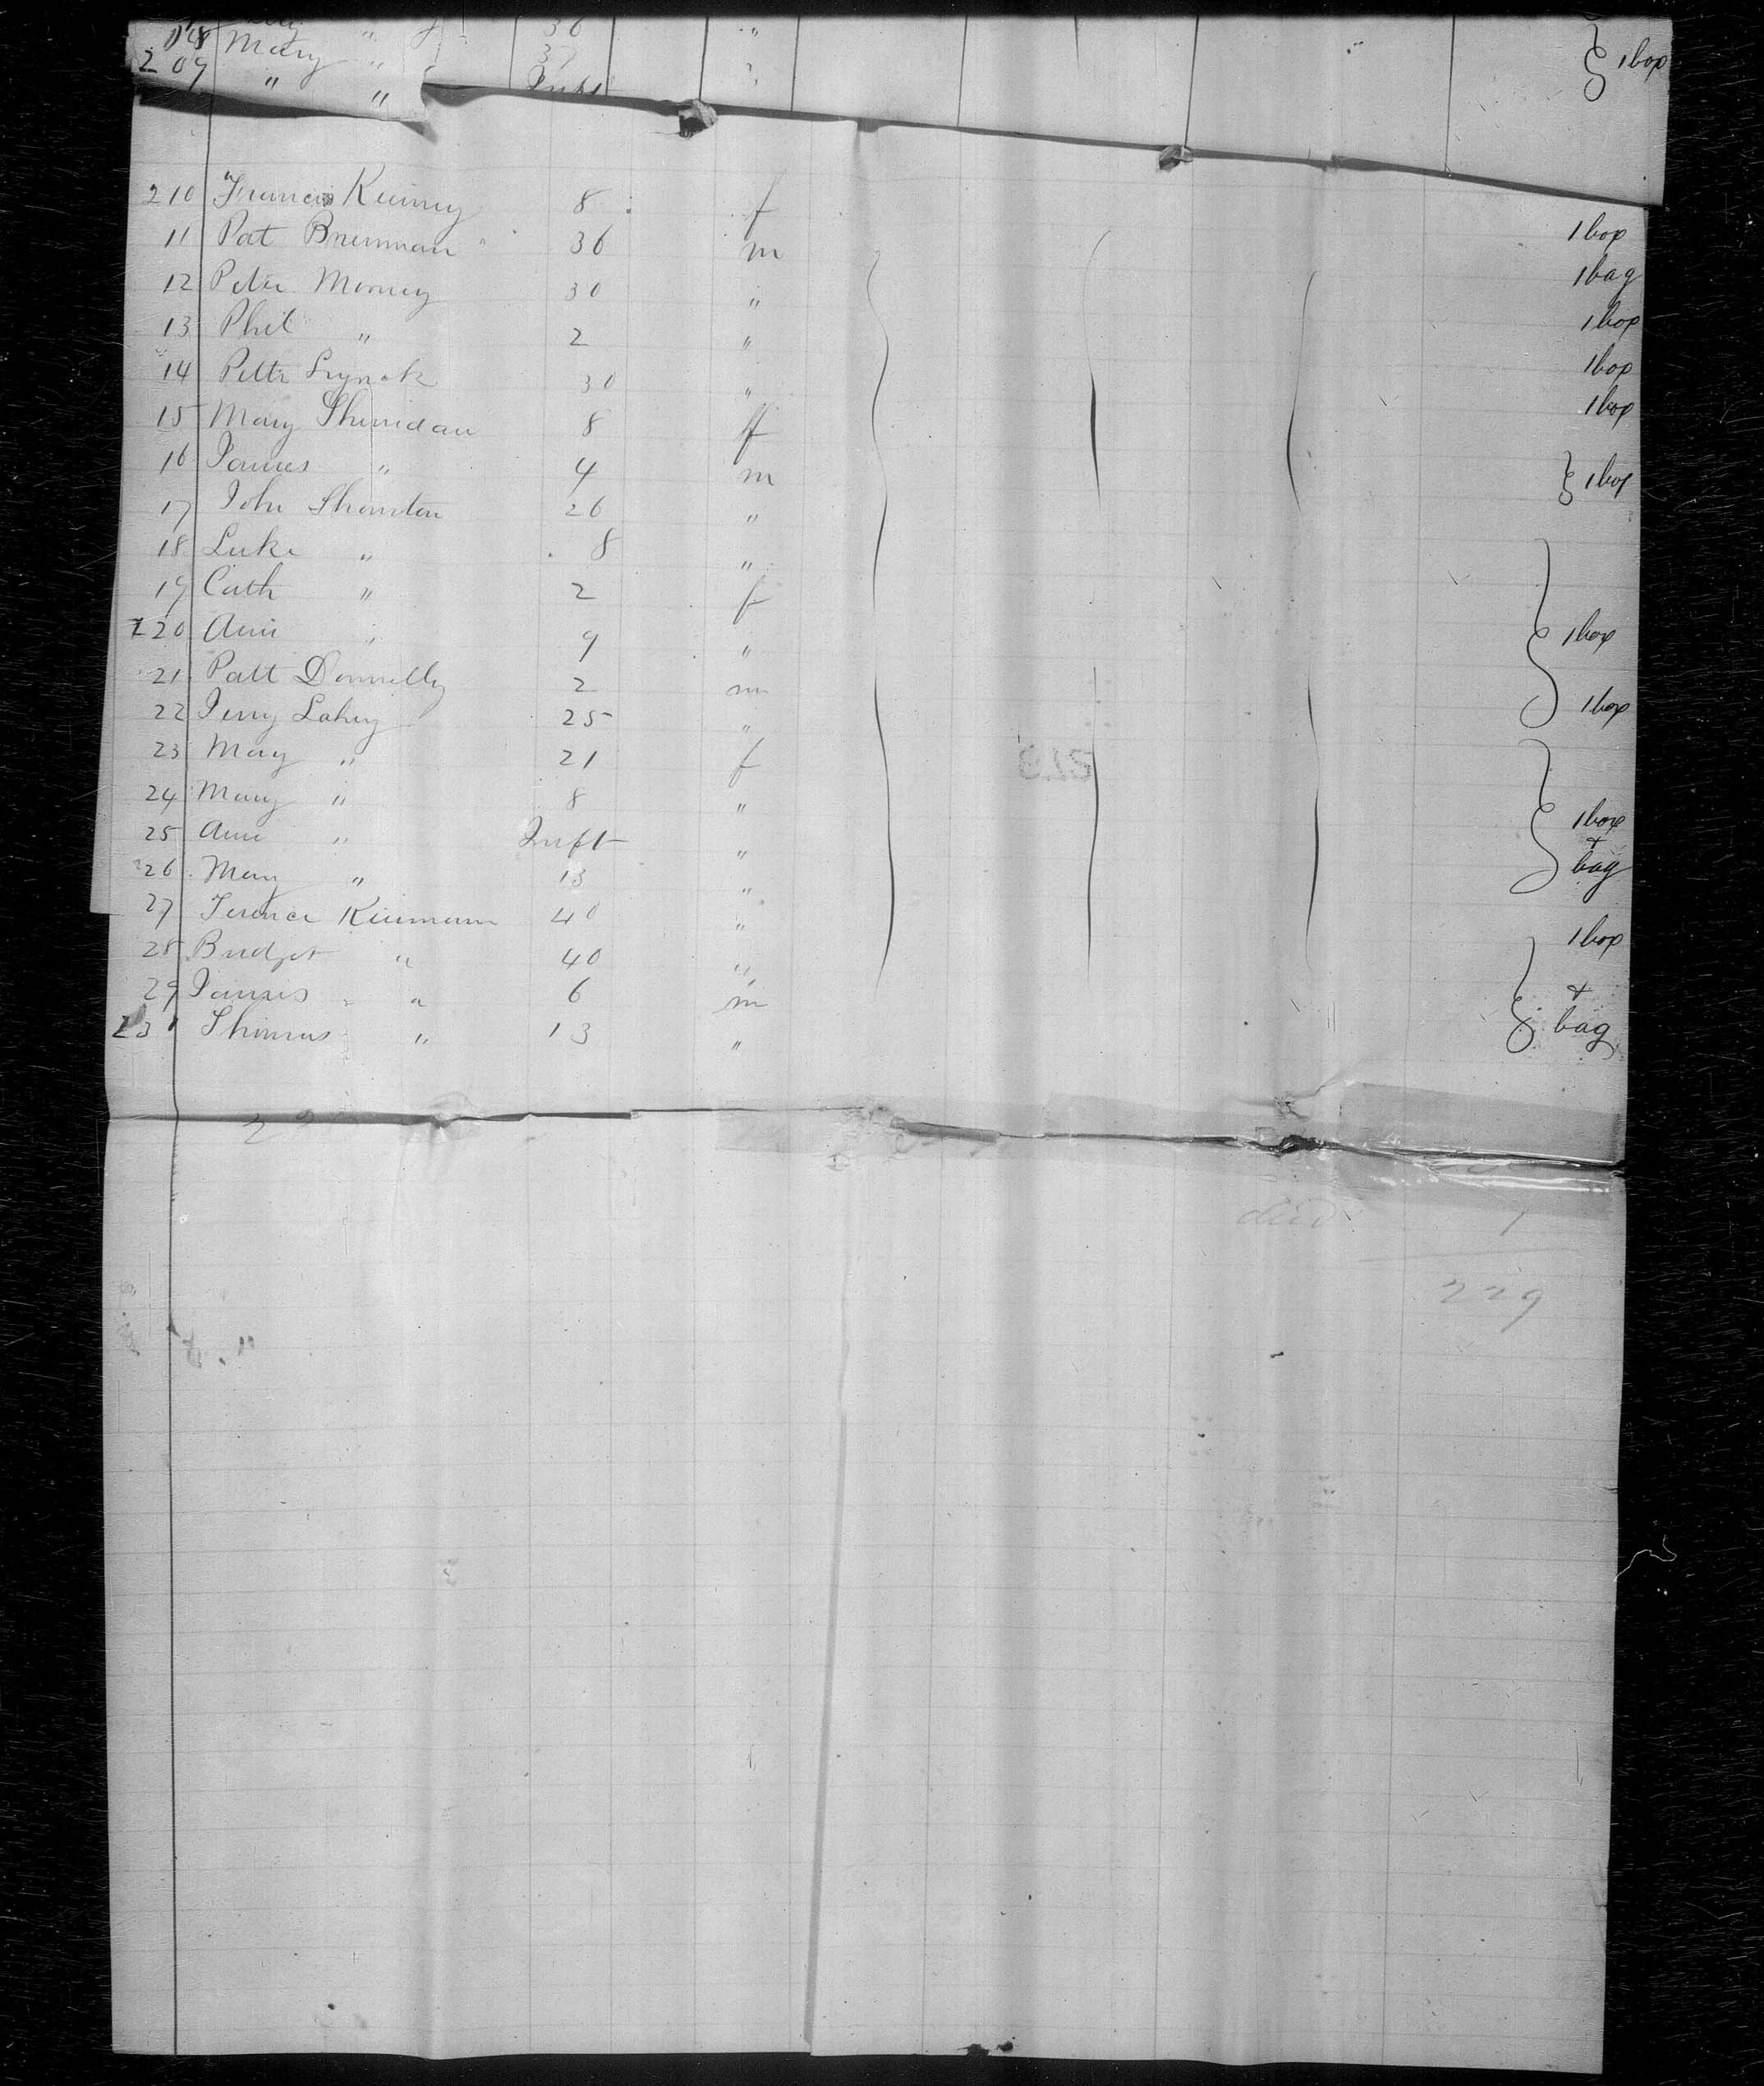 " 36 "
08 Mary " 37 " 1 box
209 " " Inft "
210 Francis Kinney 8 f 1 box
11 Pat Brennan 36 m 1 bag
12 Peter Morney 30 " 1 box
13 Phil " 2 " 1 box
14 Peter Lynch 30 " 1 box
15 Mary Sheridan 8 f
16 James " 4 m 1 box
17 John Thornton 26 "
18 Luke " 8 "
19 Cath " 2 f
220 Ann " 9 " 1 box
21 Patt Donnelly 2 m
22 Jerry Lahey 25 " 1 box
23 Mary " 21 f
24 Mary " 8 " 1 box
25 Ann " Inft " +
26 Mary " 13 " bag
27 Terence Kiernan 40 "
28 Bridget " 40 " 1 box
29 James " 6 m +
23 Thomas " 13 " bag
died 1
229